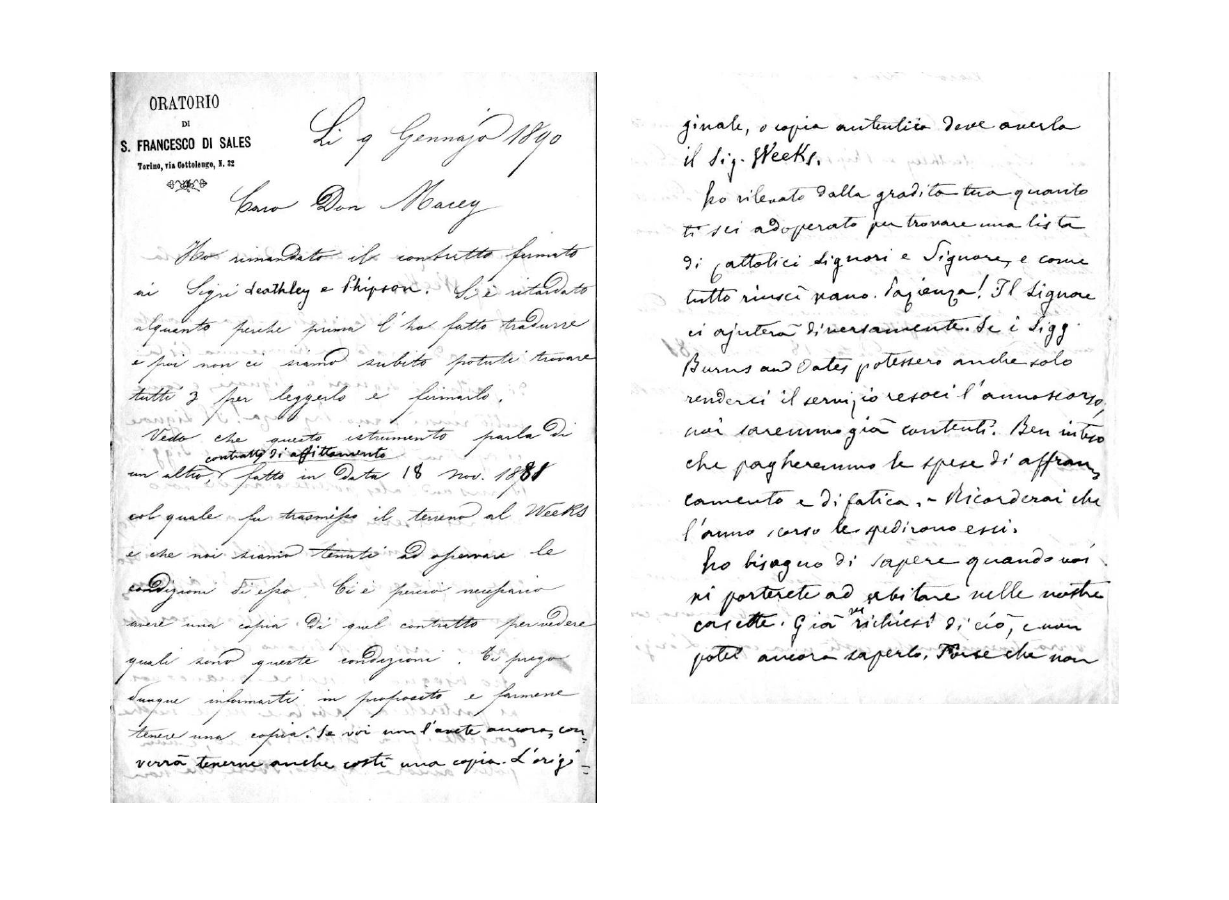 ORATORIO
DI
S. FRANCESCO DI SALES
Torino, via Cottolengo, N. 32
Li 9 Gennajo 1890
Caro Don Macey
Ho rimandato il contratto firmato
ai Sigri Leathley e Phipson. Si è ritardato
alquanto perchè prima l'ho fatto tradurre
e poi non ci siamo subito potuti trovare
tutti 3 per leggerlo e firmarlo.
Vedo che questo istrumento parla di
contratto di affittamento
un altro, fatto in data 18 Nov. 1881
col quale fu trasmesso il terreno al Weeks
e che noi siamo tenuti ad osservare le
condizioni di esso. Ci è perciò necessario
avere una copia di quel contratto per vedere
quali sono queste condizioni. Ti prego
dunque informarti in proposito e farmene
tenere una copia. Se voi non l'avete ancora, con-
verrà tenerne anche costì una copia. L'origi=
ginale, o copia autentica deve averla
il Sig. Weeks.
Ho rilevato dalla gradita tua quanto
ti sei adoperato per trovare una lista
di Cattolici Signori e Signore, e come
tutto riuscì vano. Pazienza! Il Signore
ci ajuterà diversamente. Se i Sigg.
Burns and Oates potessero anche solo
renderci il servizio resoci l'anno scorso,
noi saremmo già contenti. Ben inteso
che pagheremmo le spese di affran,
camento e di fatica. - Ricorderai che
l'anno scorso le spedirono essi.
Ho bisogno di sapere quando voi
vi porterete ad abitare nelle nostre
casette. Già vi richiesi di ciò, e non
potei ancora saperlo. Forse che non